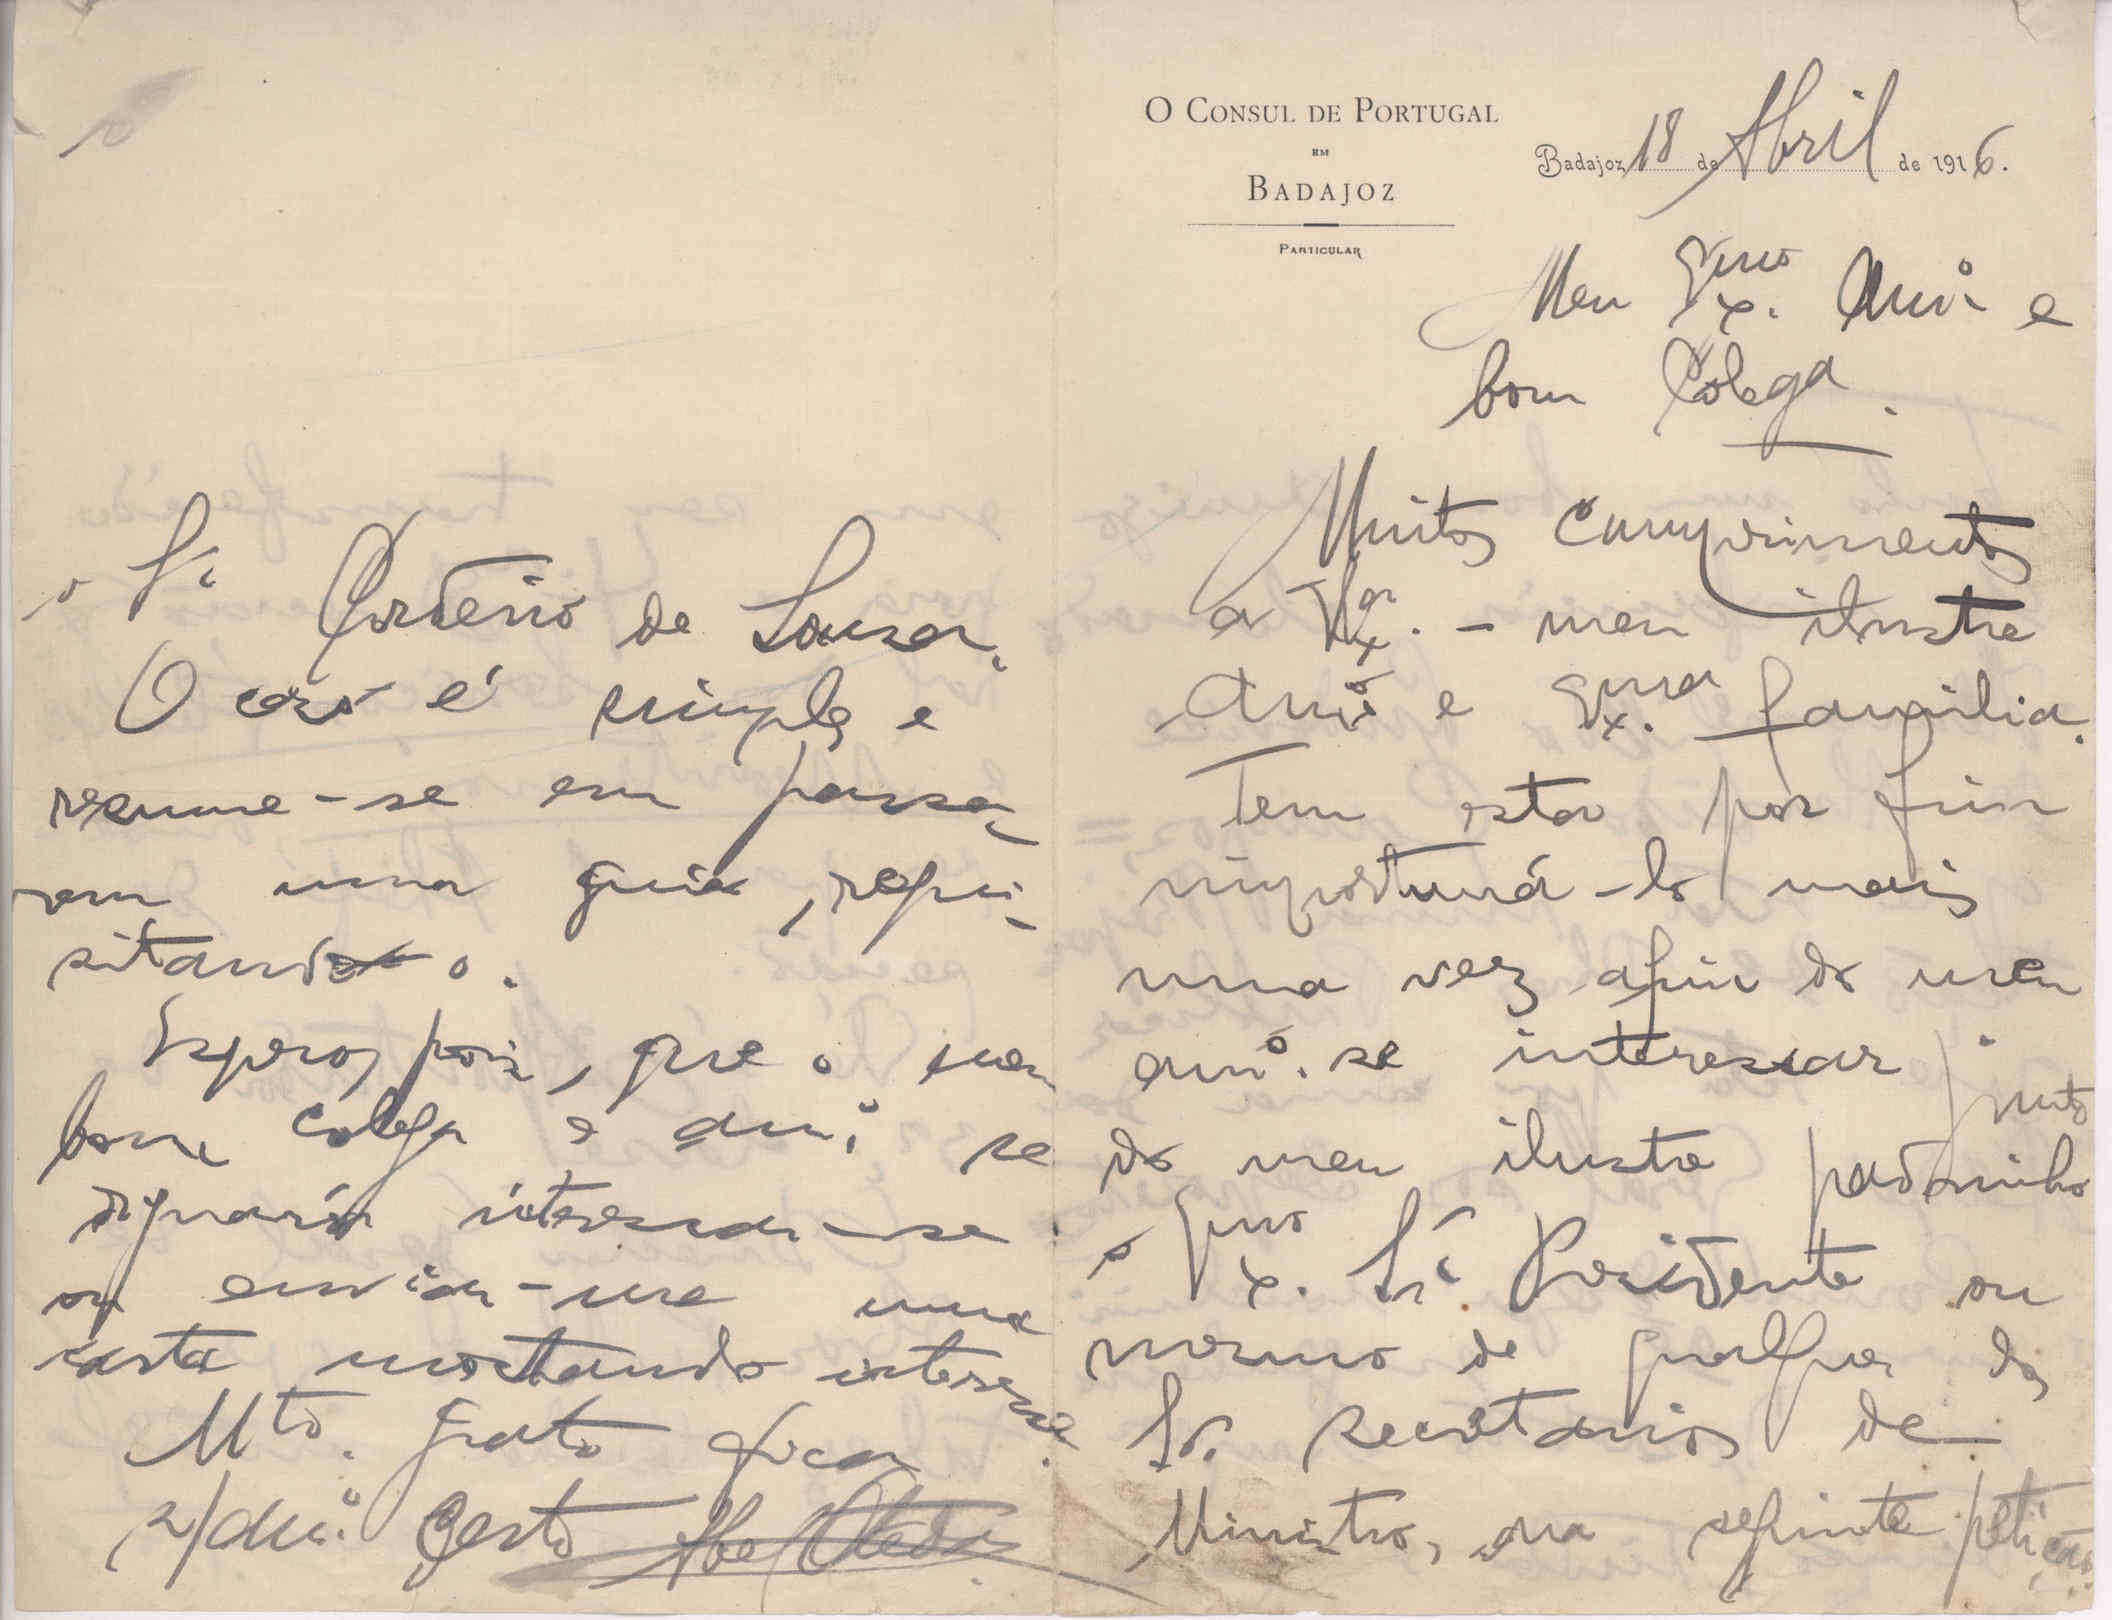 O CONSUL DE PORTUGAL
EM
BADAJOZ
PARTICULAR
Badajoz 18 de Abril de 1916.
Meu Exmo. Amº e
bom Colega.
Muitos cumprimentos
a V. Exª. - meu ilustre
Amº e Exma. familia.
Tem esta por fim
importuná-lo mais
uma vez afim do meu
amº. se interessar junto
do meu ilustre padrinho
o Exmo. Sr. Presidente ou
mesmo de qualquer dos
Srs. Secretarios de
Ministro, na seguinte petição:
o Sr. Cordeiro de Souza.
O caso é simples e
resume-se em passa-
rem uma guia, requi-
sitando-o.
Espero, pois, que o meu
bom colega e amº se
dignará interessar-se
ou enviar-me uma
carta mostrando interesse
Mto. grato fica
s/ amº. certo Abel